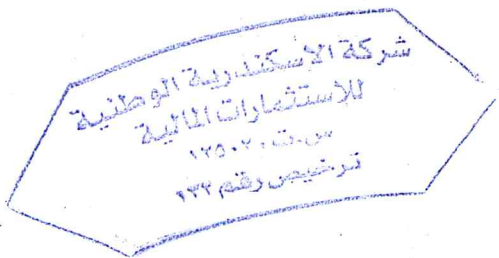 شركة الاسكندرية الوطنية
للاستثمارات المالية
س.ت.٢٠٥٢١
ترخيص رقم ١٣٢